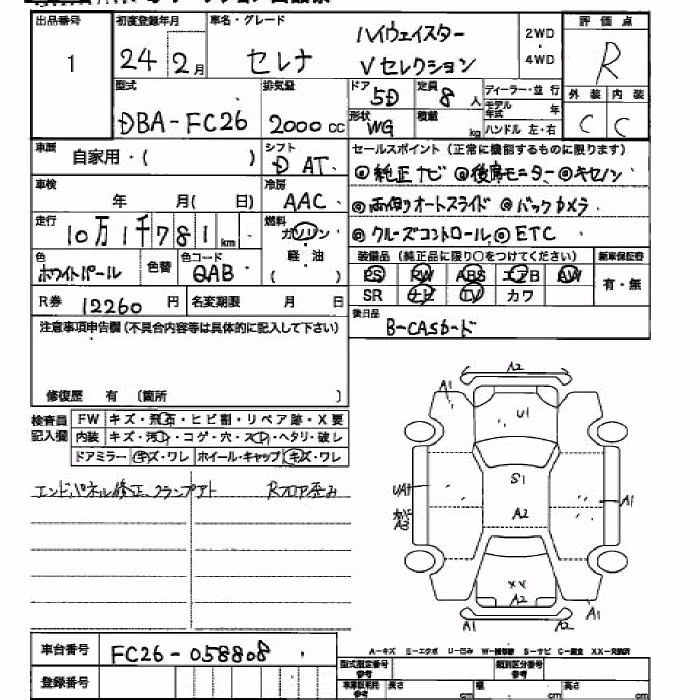 出品番号 初度登録年月 車名・グレード 評価点
1 24年 2月 セレナ ハイウェイスター Vセレクション 2WD・4WD R
型式 排気量 ドア 5D 定員 8人 ディーラー・並行 外装 内装
DBA-FC26 2000cc 形状 WG 積載 kg モデル年式 年 C C
ハンドル 左・右
車歴 自家用・( ) シフト D AT セールスポイント (正常に機能するものに限ります)
◎純正ナビ ◎後席モニター ◎キセノン
車検 年 月( 日) 冷房 AAC
◎両側オートスライド ◎バックカメラ
走行 10万1千781km 燃料 ガソリン・軽油 ( )
◎クルーズコントロール ◎ETC
色 ホワイトパール 色替 色コード QAB
装備品 (純正品に限り○をつけてください) 新車保証書
PS PW ABS エアB AW 有・無
SR ナビ TV カワ
R券 12260円 名変期限 月 日
後日品 B-CASカード
注意事項申告欄(不具合内容等は具体的に記入して下さい)
修復歴 有 (箇所 )
検査員記入欄 FW キズ・飛石・ヒビ割・リペア跡・X要
内装 キズ・汚れ・コゲ・穴・スレ・ヘタリ・破レ
ドアミラー キズ・ワレ ホイール・キャップ キズ・ワレ
エンドパネル修正、クランプアト Rフロア歪み
A2
A1
U1
S1
UA1
A3
A2
A1
XX
A2
A1
A2
A1
A-キズ E-エクボ U-凹み W-補修跡 S-サビ C-腐食 XX-交換済
車台番号 FC26-058808
型式指定番号 類別区分番号
登録番号
長さ cm 幅 cm 高さ cm